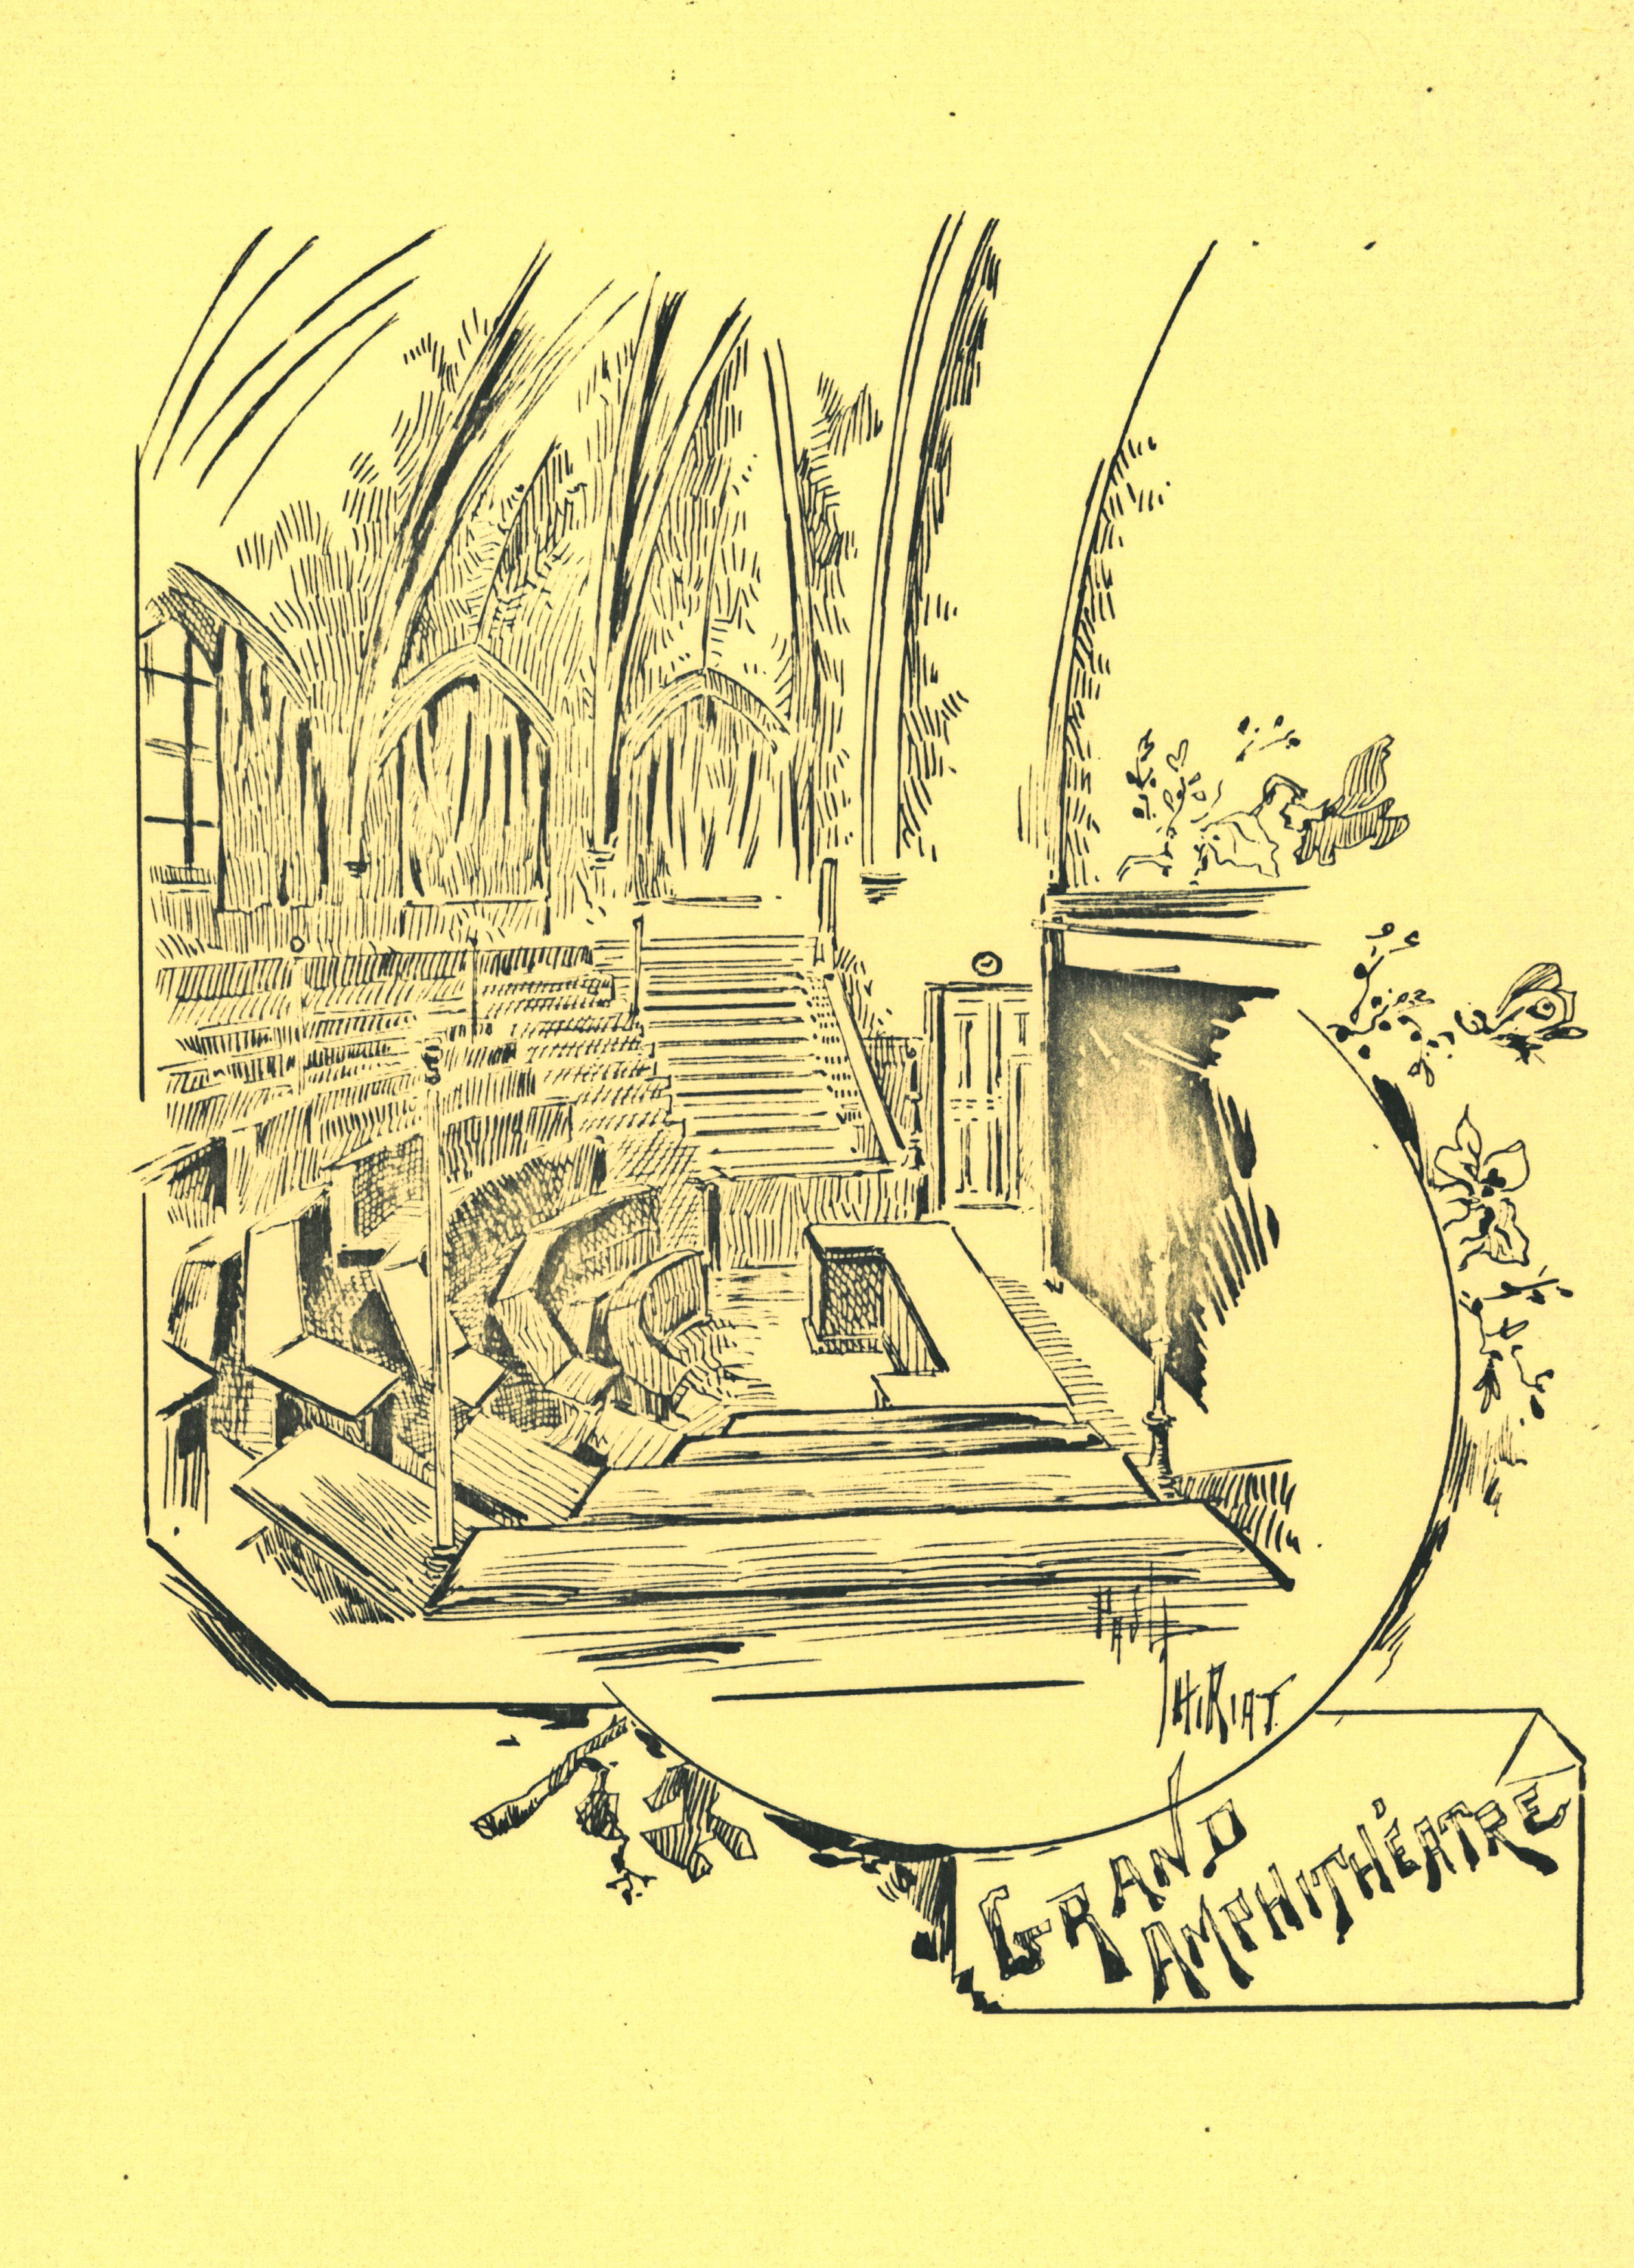 PAUL
THIRIAT
GRAND
AMPHITHÉATRE